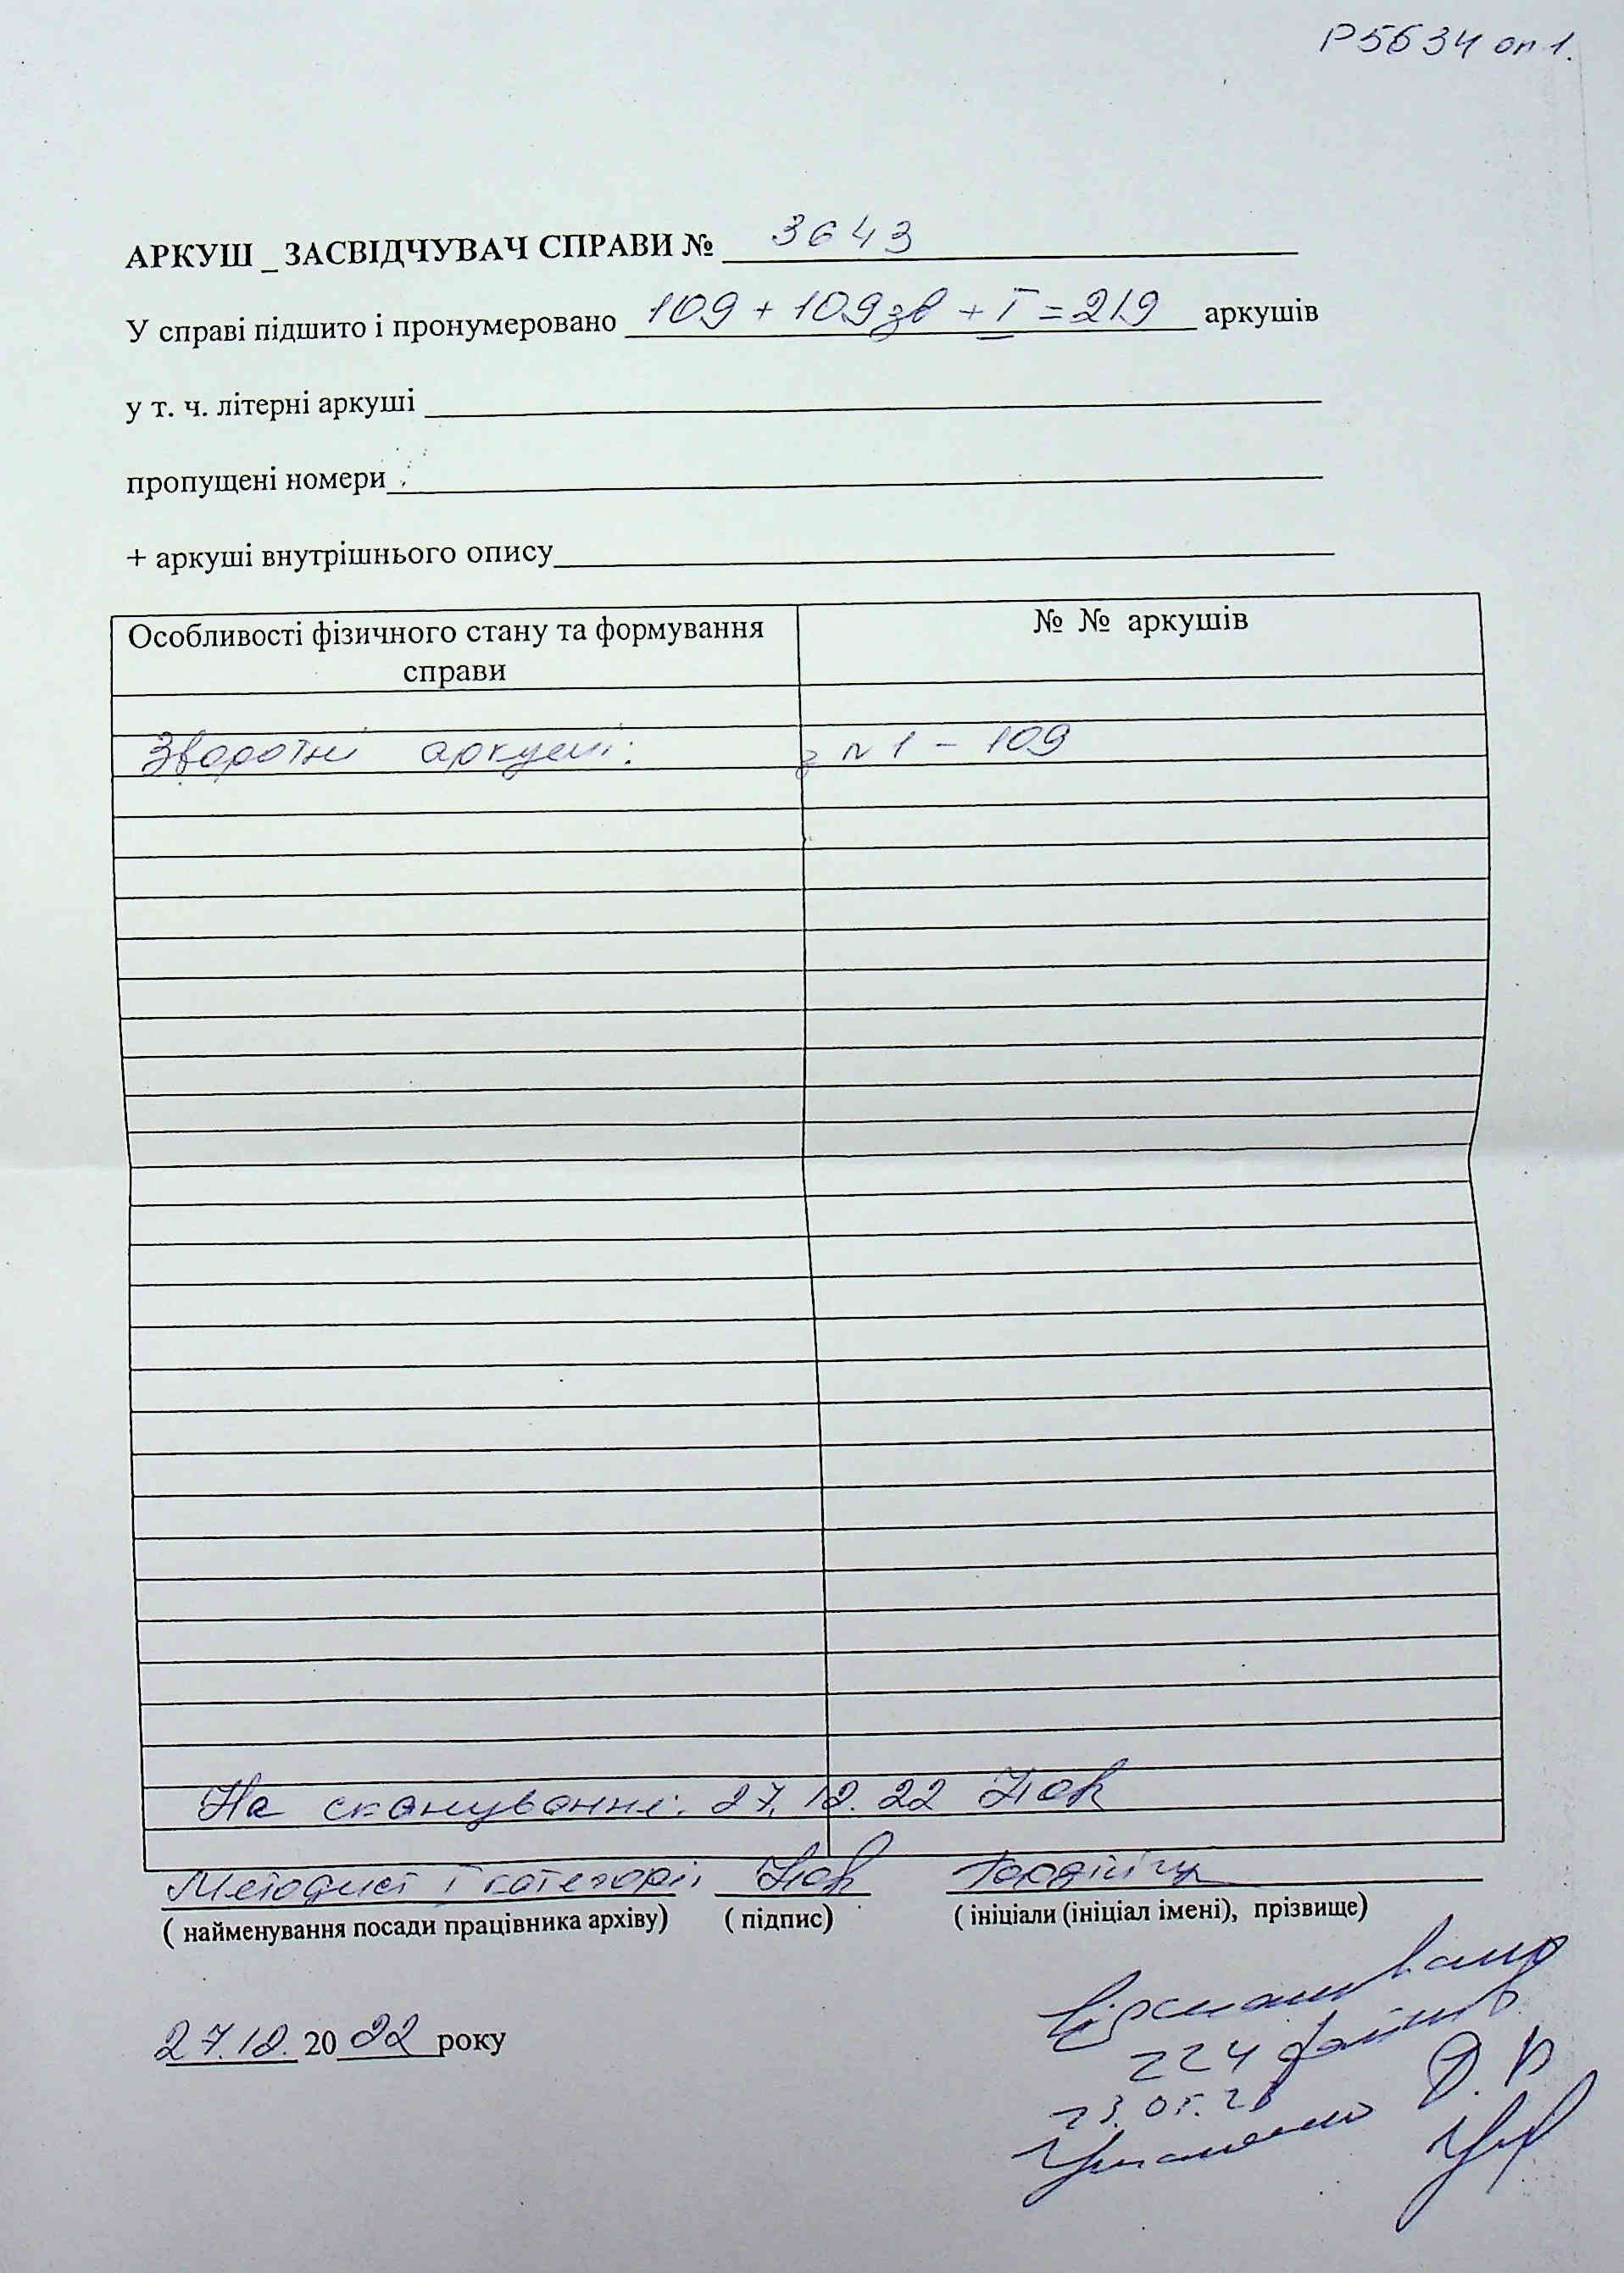 Р5634 оп 1.
АРКУШ _ ЗАСВІДЧУВАЧ СПРАВИ № 3643
У справі підшито і пронумеровано 109 + 109 зв + I = 219 аркушів
у т. ч. літерні аркуші
пропущені номери
+ аркуші внутрішнього опису
Особливості фізичного стану та формування справи
№ № аркушів
Зворотні аркуші: з № 1 – 109
На сканування: 27.12.22
Методист I категорії
( найменування посади працівника архіву) ( підпис) ( ініціали (ініціал імені), прізвище)
27.12. 2022 року
Відскановано
224 файлів
23.05.23